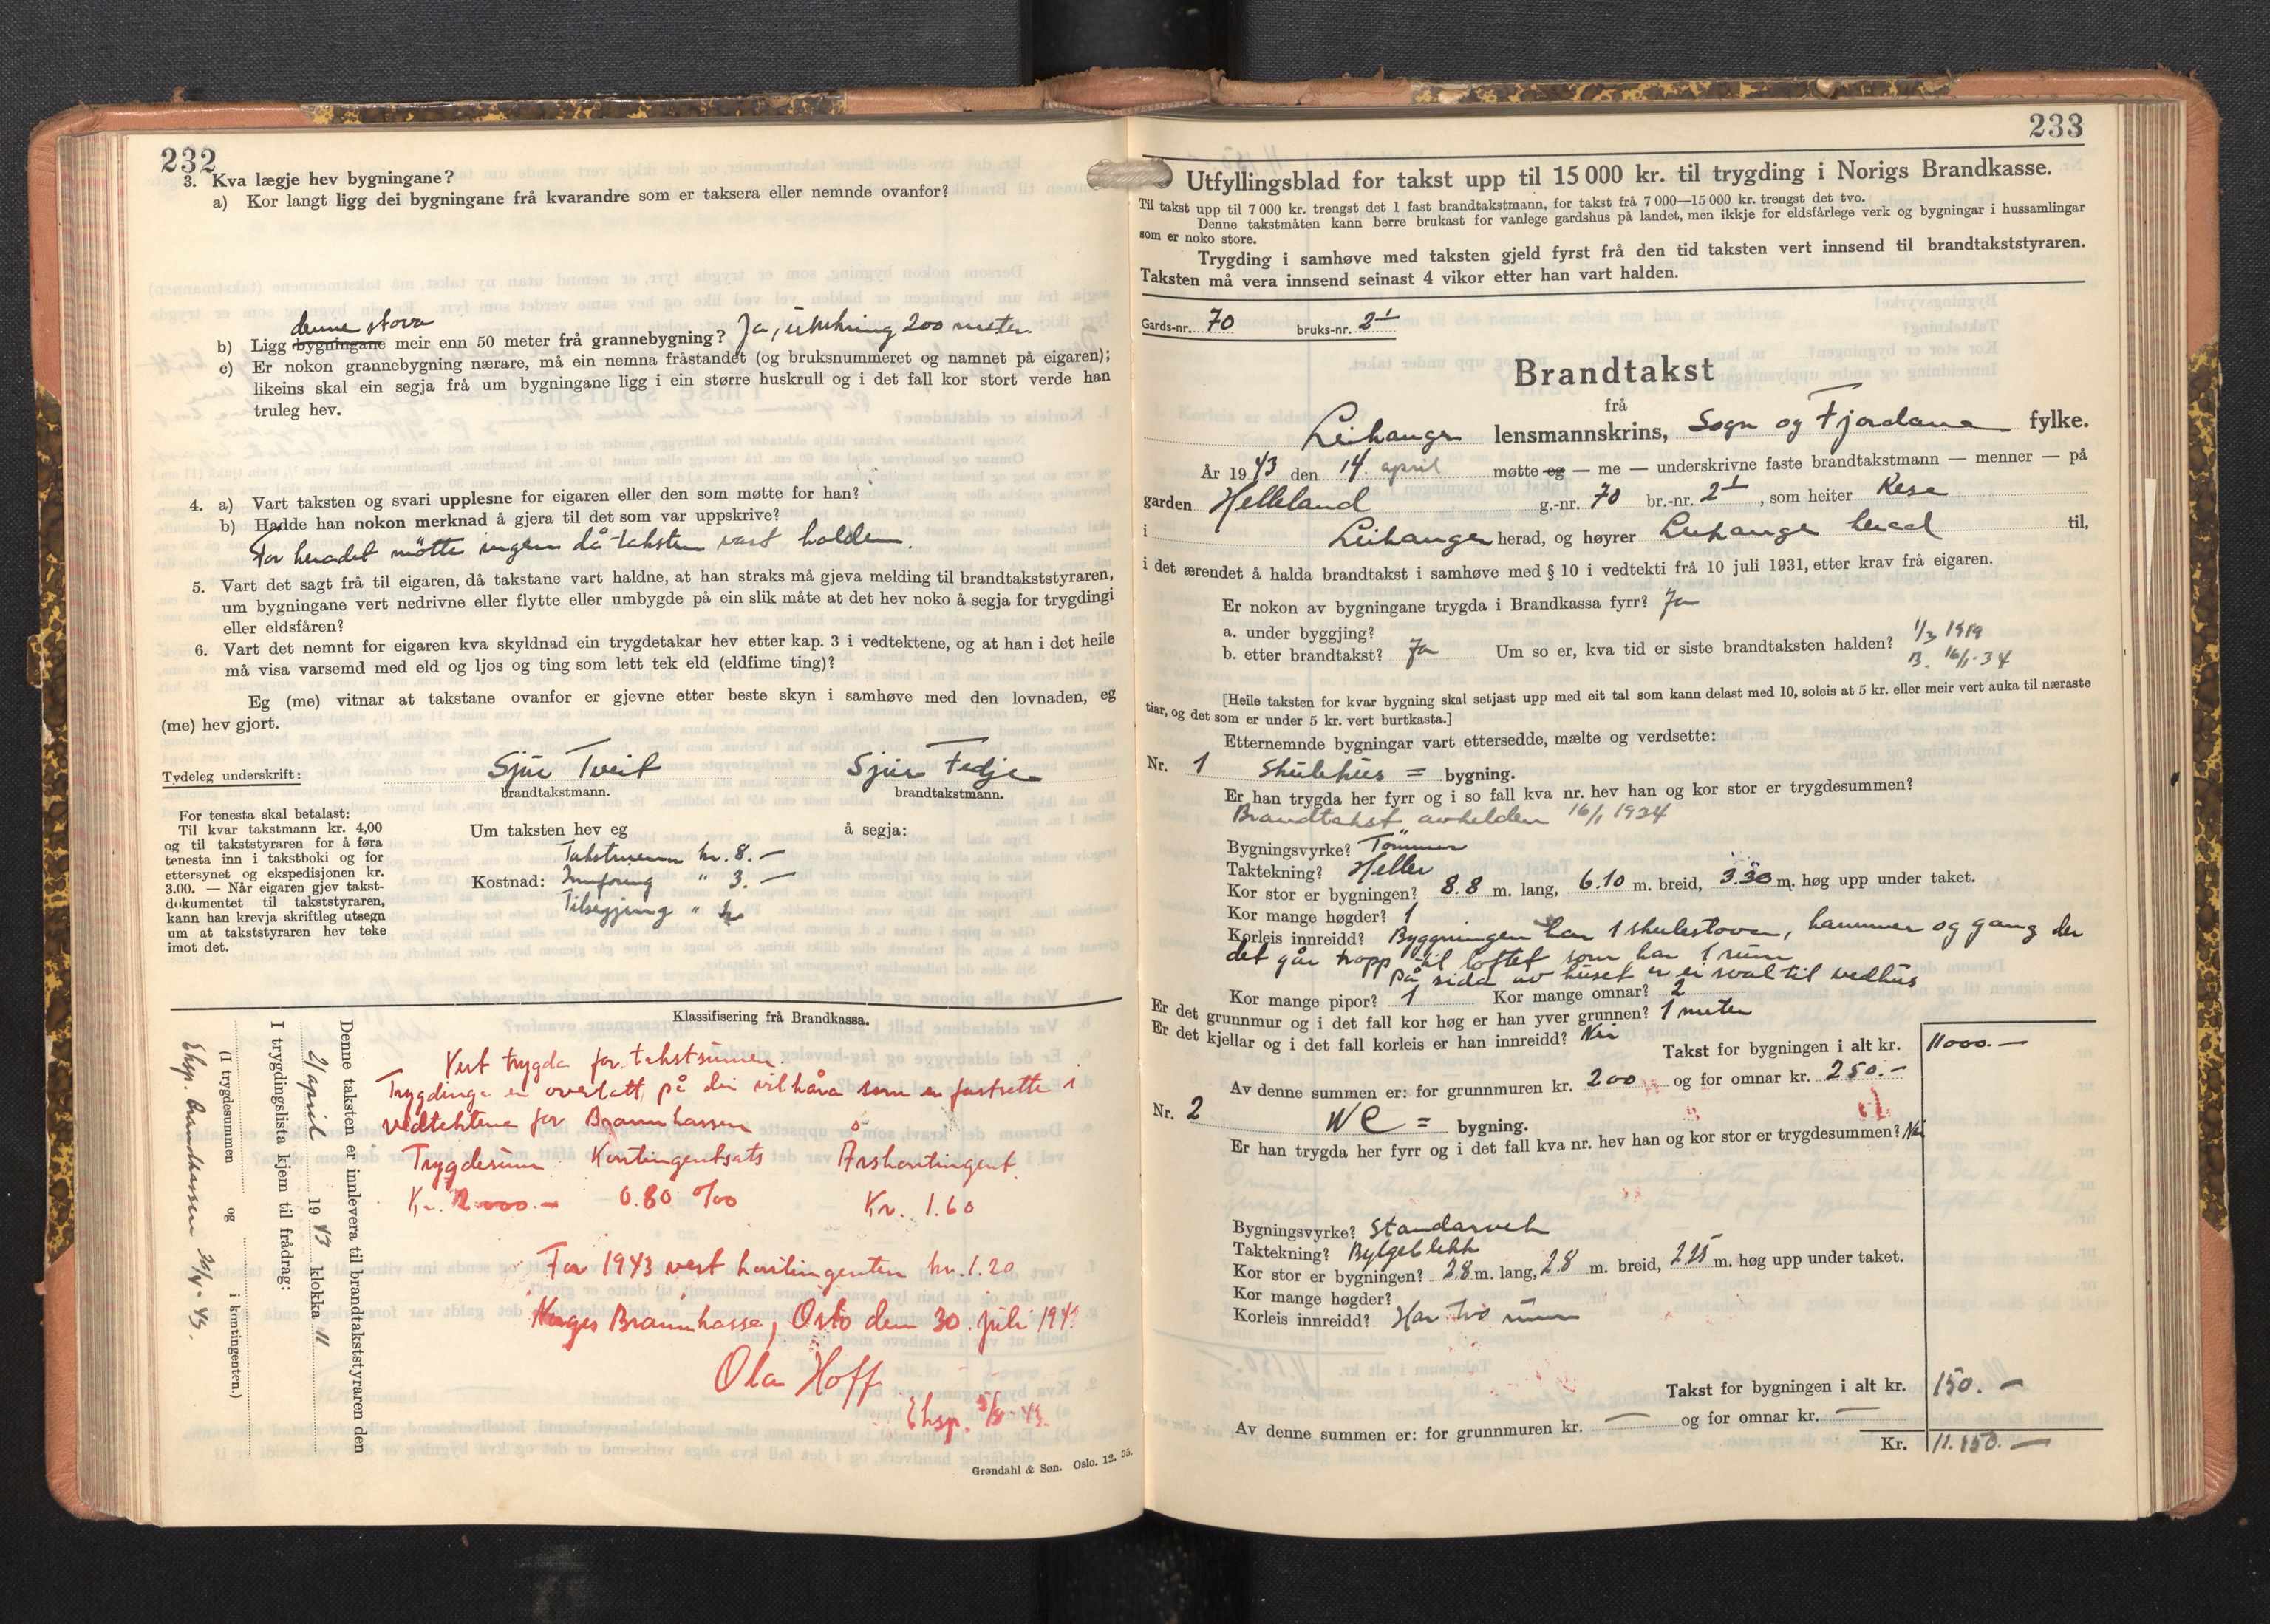 232
3. Kva lægje hev bygningane?
a) Kor langt ligg dei bygningane frå kvarandre som er taksera eller nemnde ovanfor?
denne stova
b) Ligg bygningane meir enn 50 meter frå grannebygning? Ja, umkring 200 meter.
c) Er nokon grannebygning nærare, må ein nemna fråstandet (og bruksnummeret og namnet på eigaren);
likeins skal ein segja frå um bygningane ligg i ein større huskrull og i det fall kor stort verde han
truleg hev.
4. a) Vart taksten og svari upplesne for eigaren eller den som møtte for han?
b) Hadde han nokon merknad å gjera til det som var uppskrive?
For heradet møtte ingen då taksten vart halden.
5. Vart det sagt frå til eigaren, då takstane vart haldne, at han straks må gjeva melding til brandtakststyraren,
um bygningane vert nedrivne eller flytte eller umbygde på ein slik måte at det hev noko å segja for trygdingi
eller eldsfåren?
6. Vart det nemnt for eigaren kva skyldnad ein trygdetakar hev etter kap. 3 i vedtektene, og at han i det heile
må visa varsemd med eld og ljos og ting som lett tek eld (eldfime ting)?
Eg (me) vitnar at takstane ovanfor er gjevne etter beste skyn i samhøve med den lovnaden, eg
(me) hev gjort.
Tydeleg underskrift: Sjur Tveit Sjur Fedje
brandtakstmann. brandtakstmann.
For tenesta skal betalast:
Til kvar takstmann kr. 4,00
og til takststyraren for å føra
tenesta inn i takstboki og for
ettersynet og ekspedisjonen kr.
3.00. — Når eigaren gjev takst-
dokumentet til takststyraren,
kann han krevja skriftleg utsegn
um at takststyraren hev teke
imot det.
Um taksten hev eg å segja:
Takstmenn kr. 8. —
Kostnad: Innføring " 3. —
Tilsegjing "
Klassifisering frå Brandkassa.
Vert trygda for takstsumen.
Trygdinga er overlatt på dei vilkåra som er fastsette i
vedtektene for Brannkassen
Trygdesum Kontingentsats Årskontingent
Kr. 2000.— 0.80 ‰ Kr. 1.60
For 1943 vert kontingenten kr. 1.20
Norges Brannkasse, Oslo den 30. juli 1943
Ola Hoff
Eksp. 5/8-43.
Denne taksten er innlevera til brandtakststyraren den
21 april 1943 klokka 11
I trygdingslista kjem til frådrag:
(I trygdesummen og i kontingenten.)
Eksp. brandkassen 30/4-43.
Grøndahl & Søn. Oslo. 12. 35.
233
Utfyllingsblad for takst upp til 15 000 kr. til trygding i Norigs Brandkasse.
Til takst upp til 7 000 kr. trengst det 1 fast brandtakstmann, for takst frå 7 000—15 000 kr. trengst det tvo.
Denne takstmåten kann berre brukast for vanlege gardshus på landet, men ikkje for eldsfårlege verk og bygningar i hussamlingar
som er noko store.
Trygding i samhøve med taksten gjeld fyrst frå den tid taksten vert innsend til brandtakststyraren.
Taksten må vera innsend seinast 4 vikor etter han vart halden.
Gards-nr. 70 bruks-nr. 2 1
Brandtakst
frå
Leikanger lensmannskrins, Sogn og Fjordane fylke.
År 1943 den 14. april møtte eg — me — underskrivne faste brandtakstmann — menner — på
garden Helleland g.-nr. 70 br.-nr. 2 1, som heiter Kese
i Leikanger herad, og høyrer Leikanger herad til,
i det ærendet å halda brandtakst i samhøve med § 10 i vedtekti frå 10 juli 1931, etter krav frå eigaren.
Er nokon av bygningane trygda i Brandkassa fyrr? Ja
a. under byggjing?
b. etter brandtakst? Ja Um so er, kva tid er siste brandtaksten halden? 1/3 1919
B. 16/1-34
[Heile taksten for kvar bygning skal setjast upp med eit tal som kann delast med 10, soleis at 5 kr. eller meir vert auka til næraste
tiar, og det som er under 5 kr. vert burtkasta.]
Etternemnde bygningar vart ettersedde, mælte og verdsette:
Nr. 1 Skulehus = bygning.
Er han trygda her fyrr og i so fall kva nr. hev han og kor stor er trygdesummen?
Brandtakst avhelden 16/1 1934
Bygningsvyrke? Tømmer
Taktekning? Heller
Kor stor er bygningen? 8.8 m. lang, 6.10 m. breid, 3.30 m. høg upp under taket.
Kor mange høgder? 1
Korleis innreidd? Byggningen har 1 skulestova, kammer og gang der
det går tropp til loftet som har 1 rum
På sida av huset er ei sval til vedhus
Kor mange pipor? 1 Kor mange omnar? 2
Er det grunnmur og i det fall kor høg er han yver grunnen? 1 meter
Er det kjellar og i det fall korleis er han innreidd? Nei
Takst for bygningen i alt kr. 11000.—
Av denne summen er: for grunnmuren kr. 200 og for omnar kr. 250.—
Nr. 2 WC = bygning.
Er han trygda her fyrr og i det fall kva nr. hev han og kor stor er trygdesummen? Nei
Bygningsvyrke? Standarverk
Taktekning? Bylgeblekk
Kor stor er bygningen? 2.8 m. lang, 2.8 m. breid, 2.25 m. høg upp under taket.
Kor mange høgder?
Korleis innreidd? Har tvo rum
Takst for bygningen i alt kr. 150.—
Av denne summen er: for grunnmuren kr. — og for omnar kr. —
Kr. 11.150.—